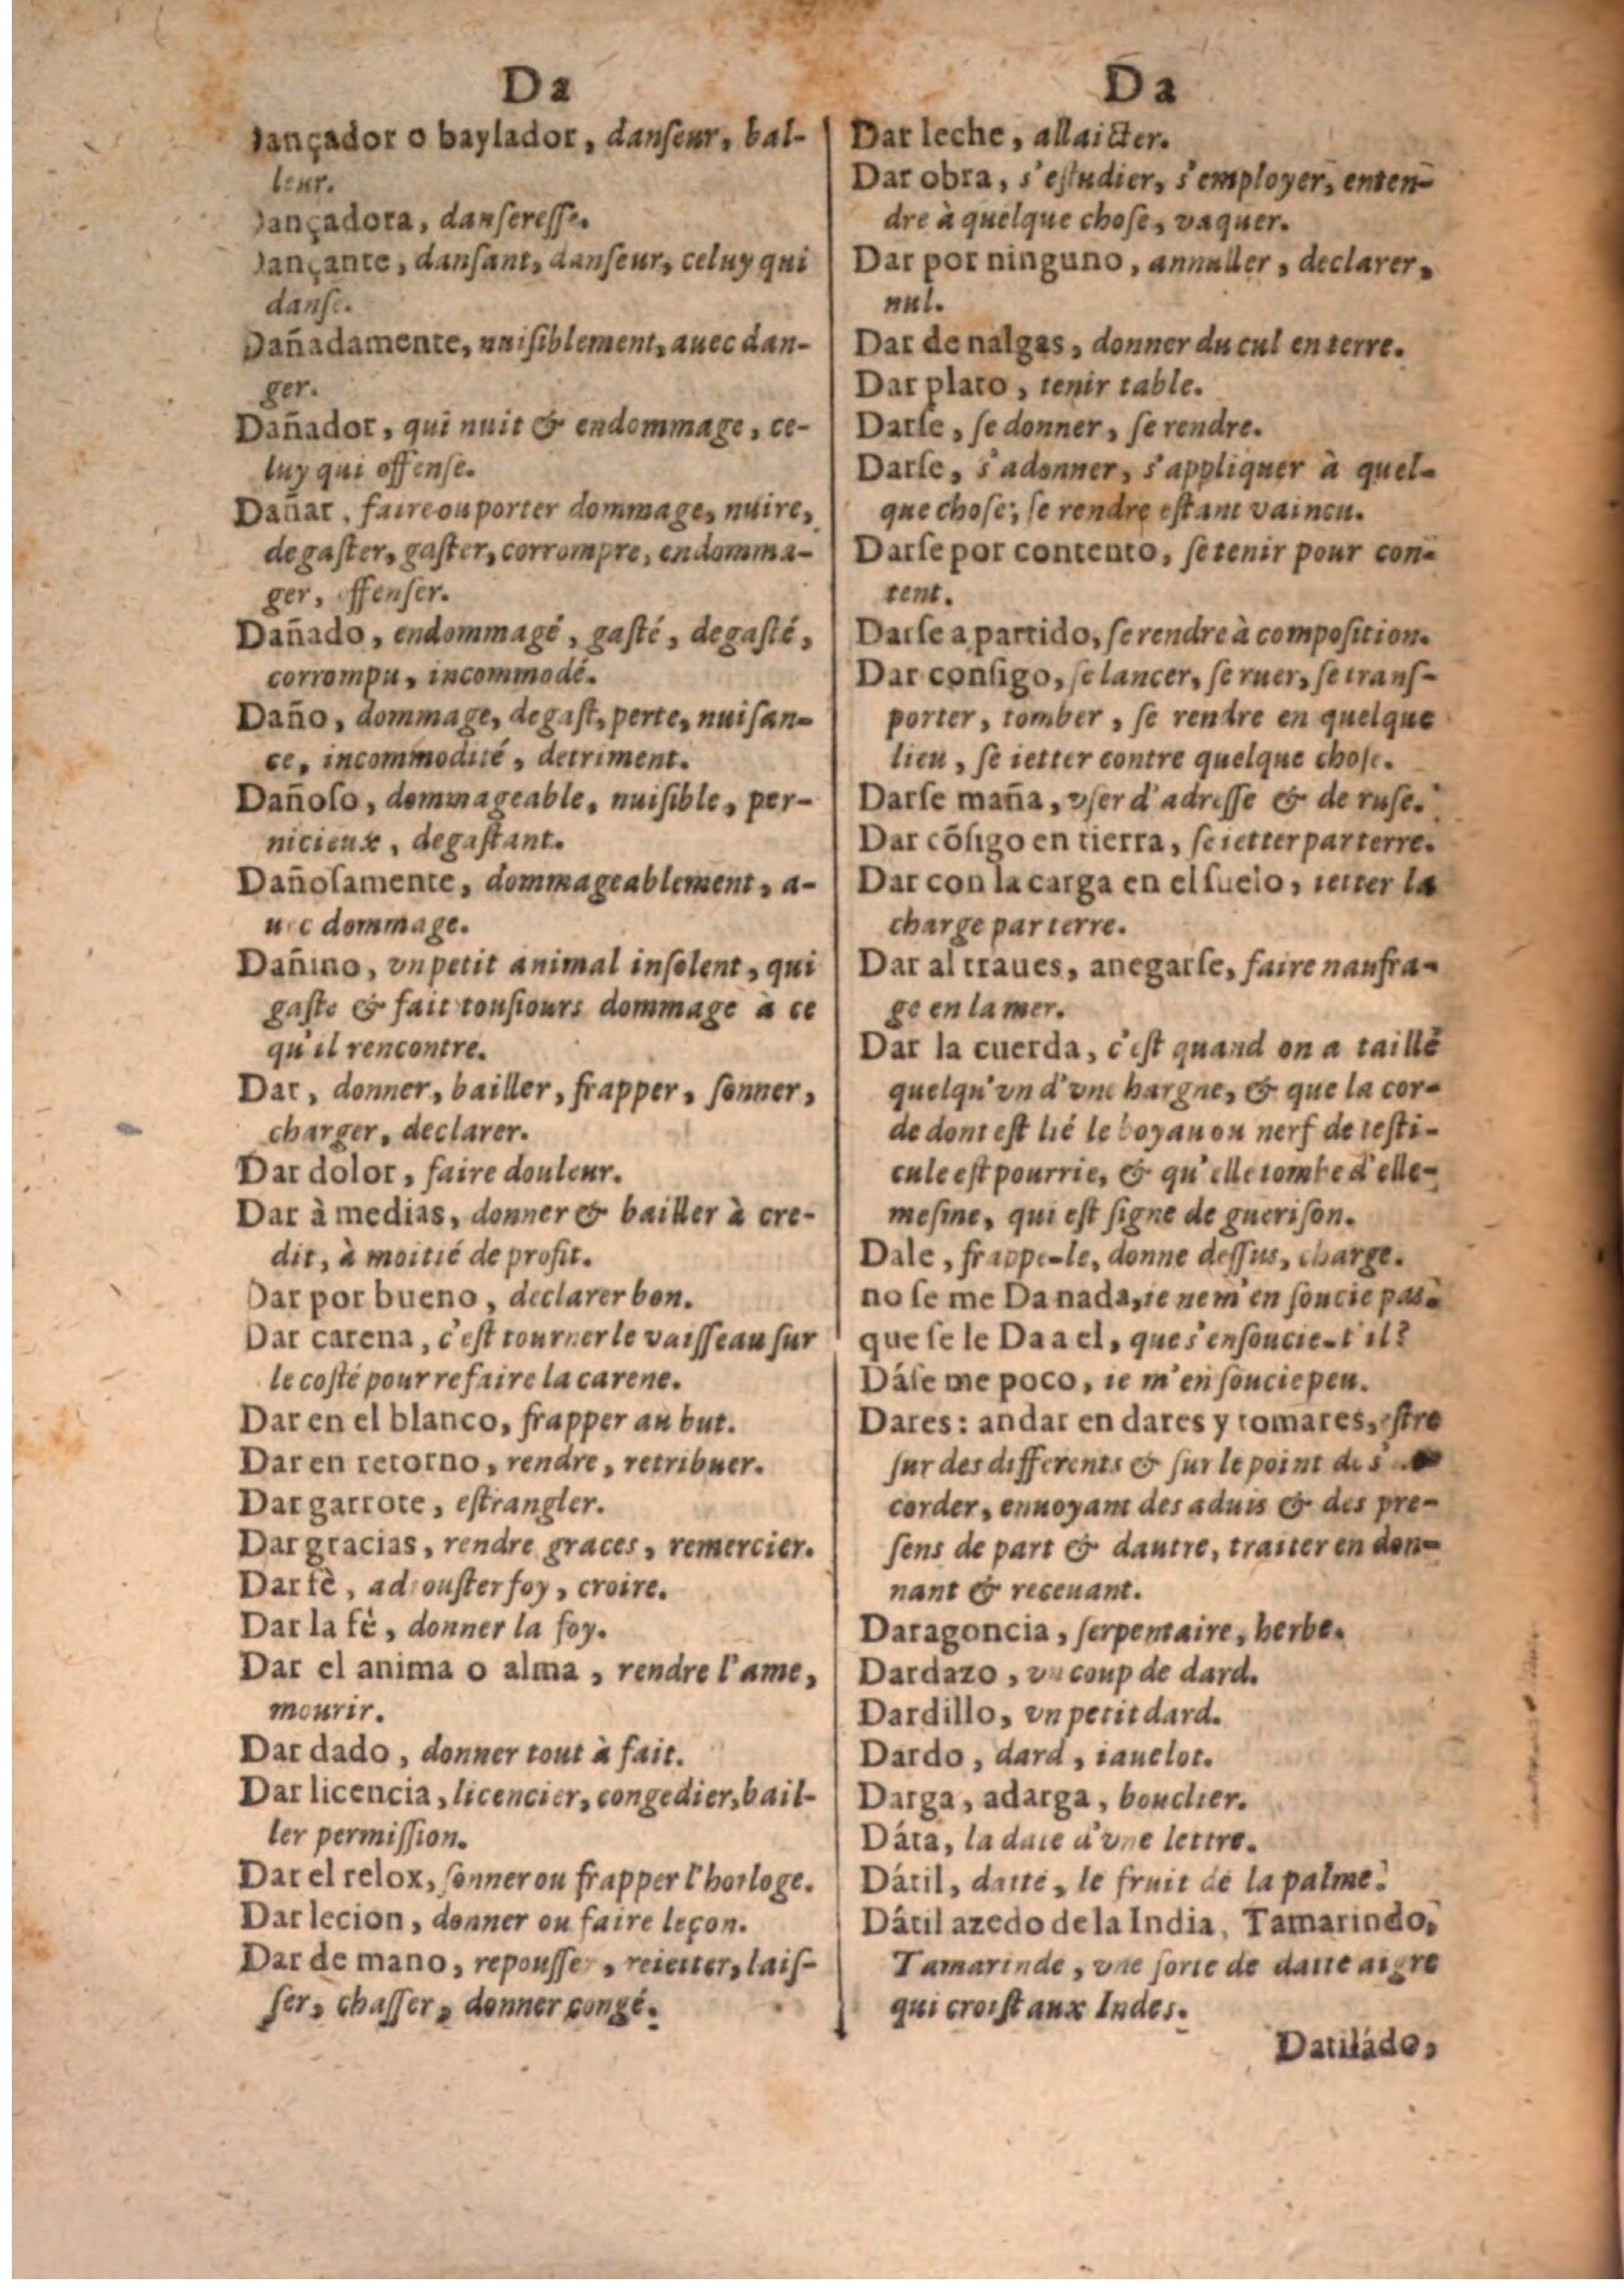 Da
Dançador o baylador, danſeur, bal-
leur.
Dançadora, danſereſſe.
Dançante, danſant, danſeur, celuy qui
danſe.
Dañadamente, nuiſiblement, auec dan-
ger.
Dañador, qui nuit & endommage, ce-
luy qui offenſe.
Dañar, faire ou porter dommage, nuire,
degaſter, gaſter, corrompre, endomma-
ger, offenſer.
Dañado, endommagé, gaſté, degaſté,
corrompu, incommodé.
Daño, dommage, degaſt, perte, nuiſan-
ce, incommodité, detriment.
Dañoſo, dommageable, nuiſible, per-
nicieux, degaſtant.
Dañoſamente, dommageablement, a-
uec dommage.
Dañino, vn petit animal inſolent, qui
gaſte & fait touſiours dommage à ce
qu'il rencontre.
Dar, donner, bailler, frapper, ſonner,
charger, declarer.
Dar dolor, faire douleur.
Dar à medias, donner & bailler à cre-
dit, à moitié de profit.
Dar por bueno, declarer bon.
Dar carena, c'eſt tourner le vaiſſeau ſur
le coſté pour refaire la carene.
Dar en el blanco, frapper au but.
Dar en retorno, rendre, retribuer.
Dar garrote, eſtrangler.
Dar gracias, rendre graces, remercier.
Dar fè, adiouſter foy, croire.
Dar la fè, donner la foy.
Dar el anima o alma, rendre l'ame,
mourir.
Dar dado, donner tout à fait.
Dar licencia, licencier, congedier, bail-
ler permiſſion.
Dar el relox, ſonner ou frapper l'horloge.
Dar lecion, donner ou faire leçon.
Dar de mano, repouſſer, reietter, laiſ-
ſer, chaſſer, donner congé.
Da
Dar leche, allaicter.
Dar obra, s'eſtudier, s'employer, enten-
dre à quelque choſe, vaquer.
Dar por ninguno, annuller, declarer,
nul.
Dar de nalgas, donner du cul en terre.
Dar plato, tenir table.
Darſe, ſe donner, ſe rendre.
Darſe, s'adonner, s'appliquer à quel-
que choſe, ſe rendre eſtant vaincu.
Darſe por contento, ſe tenir pour con-
tent.
Darſe a partido, ſe rendre à compoſition.
Dar conſigo, ſe lancer, ſe ruer, ſe tranſ-
porter, tomber, ſe rendre en quelque
lieu, ſe ietter contre quelque choſe.
Darſe maña, vſer d'adreſſe & de ruſe.
Dar cõſigo en tierra, ſe ietter par terre.
Dar con la carga en el ſuelo, ietter la
charge par terre.
Dar al traues, anegarſe, faire naufra-
ge en la mer.
Dar la cuerda, c'eſt quand on a taillé
quelqu'vn d'vne hargne, & que la cor-
de dont eſt lié le boyau ou nerf de teſti-
cule eſt pourrie, & qu'elle tombe d'elle-
meſme, qui eſt ſigne de gueriſon.
Dale, frappe-le, donne deſſus, charge.
no ſe me Da nada, ie ne m'en ſoucie pas.
que ſe le Da a el, que s'enſoucie-t'il?
Dáſe me poco, ie m'en ſoucie peu.
Dares: andar en dares y tomares, eſtre
ſur des differents & ſur le point de
corder, enuoyant des aduis & des pre-
ſens de part & dautre, traiter en don-
nant & receuant.
Daragoncia, ſerpentaire, herbe.
Dardazo, vn coup de dard.
Dardillo, vn petit dard.
Dardo, dard, iauelot.
Darga, adarga, bouclier.
Dáta, la date d'vne lettre.
Dátil, datte, le fruit de la palme.
Dátil azedo de la India, Tamarindo,
Tamarinde, vne ſorte de datte aigre
qui croiſt aux Indes.
Datiládo,